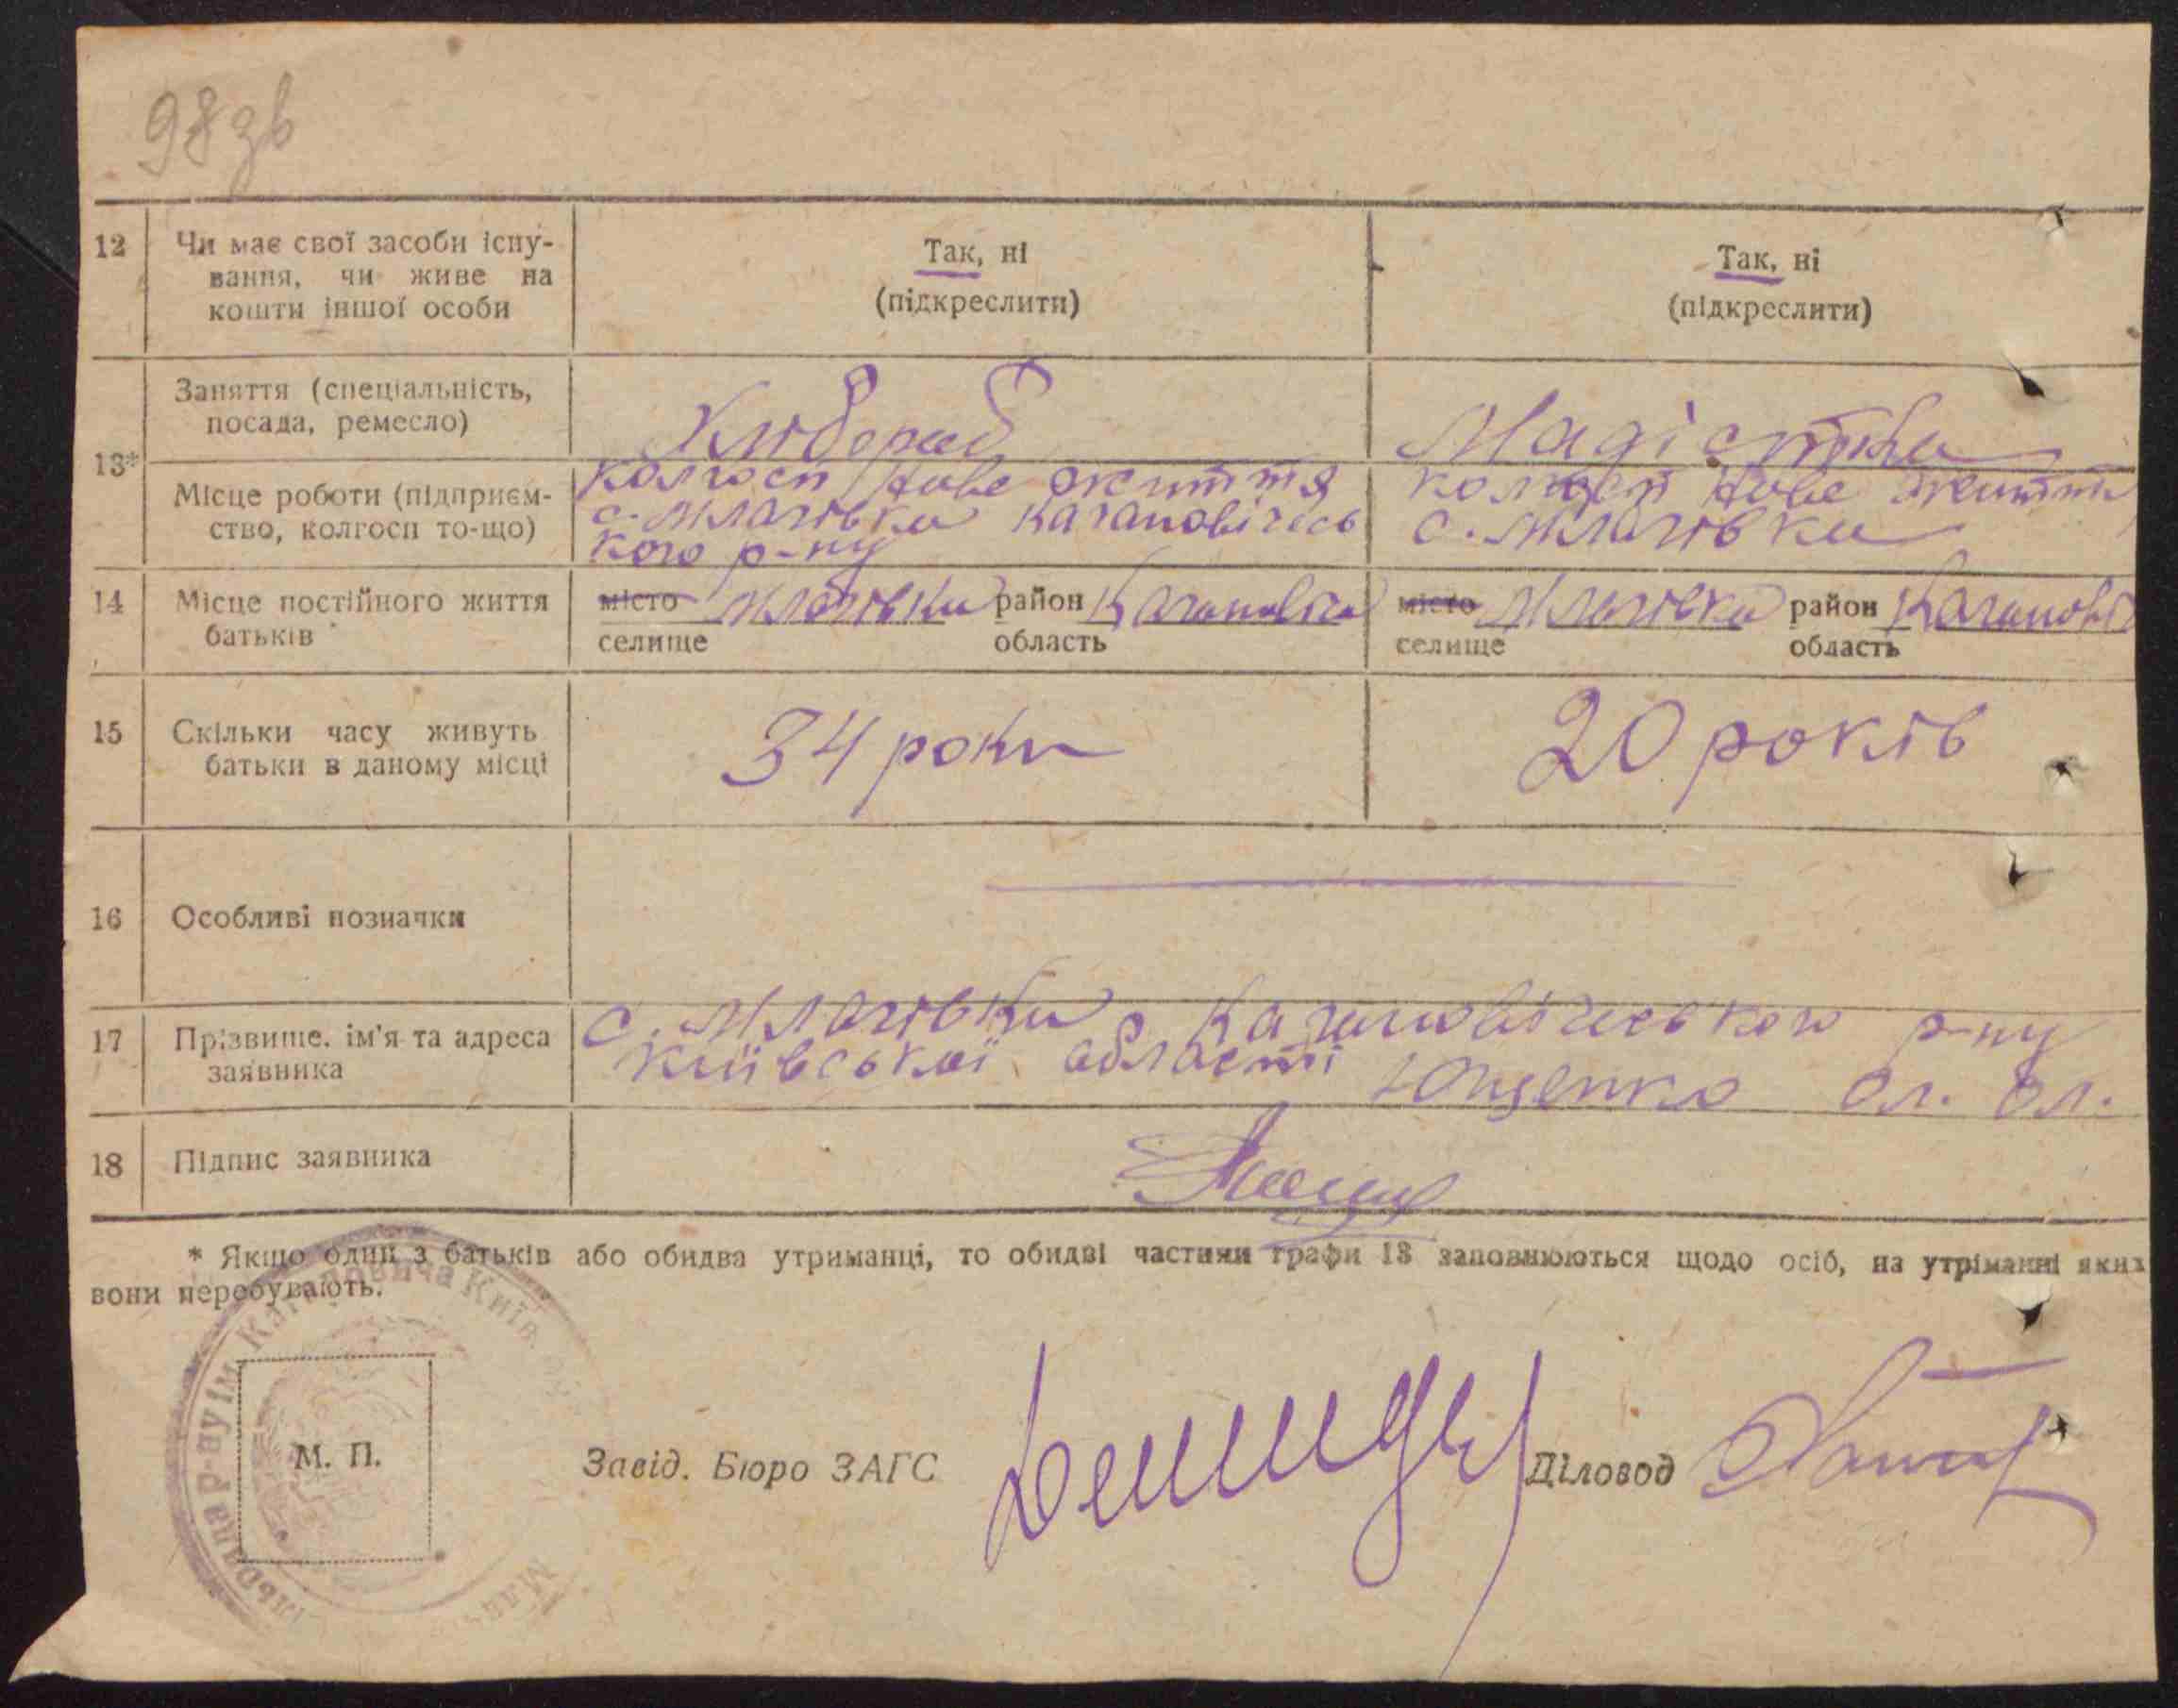 98зв
12 Чи має свої засоби існу-
вання, чи живе на
кошти іншої особи
Так, ні
(підкреслити)
Так, ні
(підкреслити)
13*
Заняття (спеціальність,
посада, ремесло)
Хлібороб
Місце роботи (підприєм-
ство, колгосп то-що)
колгосп Нове життя
с. Млачівка Кагановічесь
кого р-ну
колгосп Нове життя
с. Млачівка
14 Місце постійного життя
батьків
місто Млачівка район
селище область
місто Млачівка район
селище область
15 Скільки часу живуть
батьки в даному місці
34 роки
20 років
16 Особливі позначки
17 Прізвище, ім'я та адреса
заявника
с. Млачівка Кагановічеського р-ну
Київської області Ющенко Ол. Ол.
18 Підпис заявника
* Якщо один з батьків або обидва утриманці, то обидві частини графи 13 заповнюються щодо осіб, на утріманні яких
вони перебувають.
М. П.
Завід. Бюро ЗАГС
Діловод